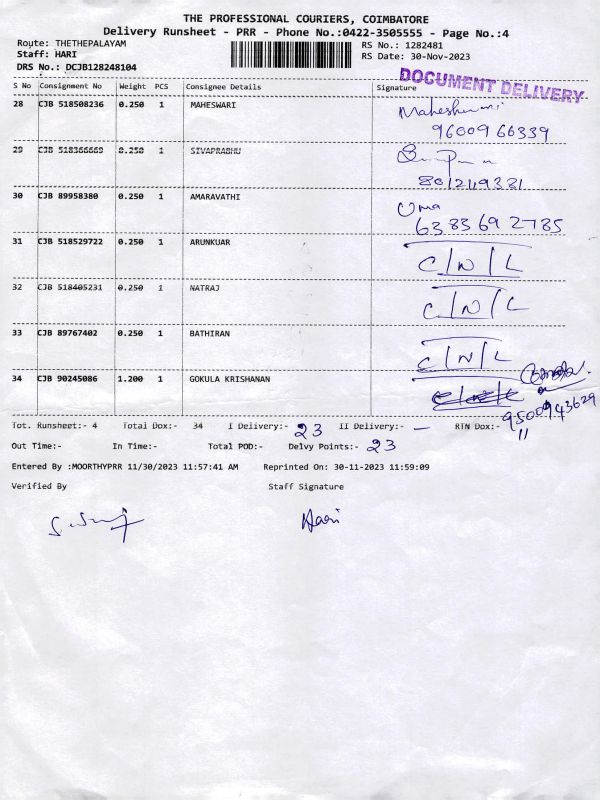 THE PROFESSIONAL COURIERS, COIMBATORE
Delivery Runsheet - PRR - Phone No.:0422-3505555 - Page No.:4
Route: THETHEPALAYAM
RS No.: 1282481
Staff: HARI
RS Date: 30-Nov-2023
DRS No.: DCJB128248104
DOCUMENT DELIVERY
S No Consignment No Weight PCS Consignee Details Signature
28 CJB 518508236 0.250 1 MAHESWARI
9600966339
29 CJB 518366669 0.250 1 SIVAPRABHU
8012119331
30 CJB 89958380 0.250 1 AMARAVATHI Uma
6383692785
31 CJB 518529722 0.250 1 ARUNKUAR C/N/L
32 CJB 518405231 0.250 1 NATRAJ C/N/L
33 CJB 89767402 0.250 1 BATHIRAN C/N/L
34 CJB 90245086 1.200 1 GOKULA KRISHANAN
9500943629
Tot. Runsheet:- 4 Total Dox:- 34 I Delivery:- 23 II Delivery:- — RTN Dox:- 11
Out Time:- In Time:- Total POD:- Delvy Points:- 23
Entered By :MOORTHYPRR 11/30/2023 11:57:41 AM Reprinted On: 30-11-2023 11:59:09
Verified By Staff Signature
Hari